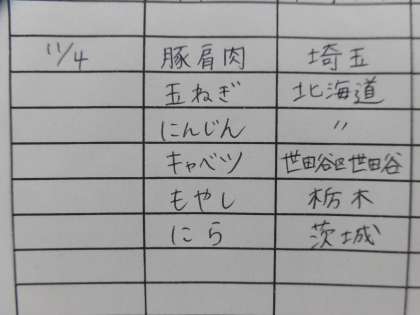 11/4 豚肩肉 埼玉
玉ねぎ 北海道
にんじん 〃
キャベツ 世田谷区世田谷
もやし 栃木
にら 茨城